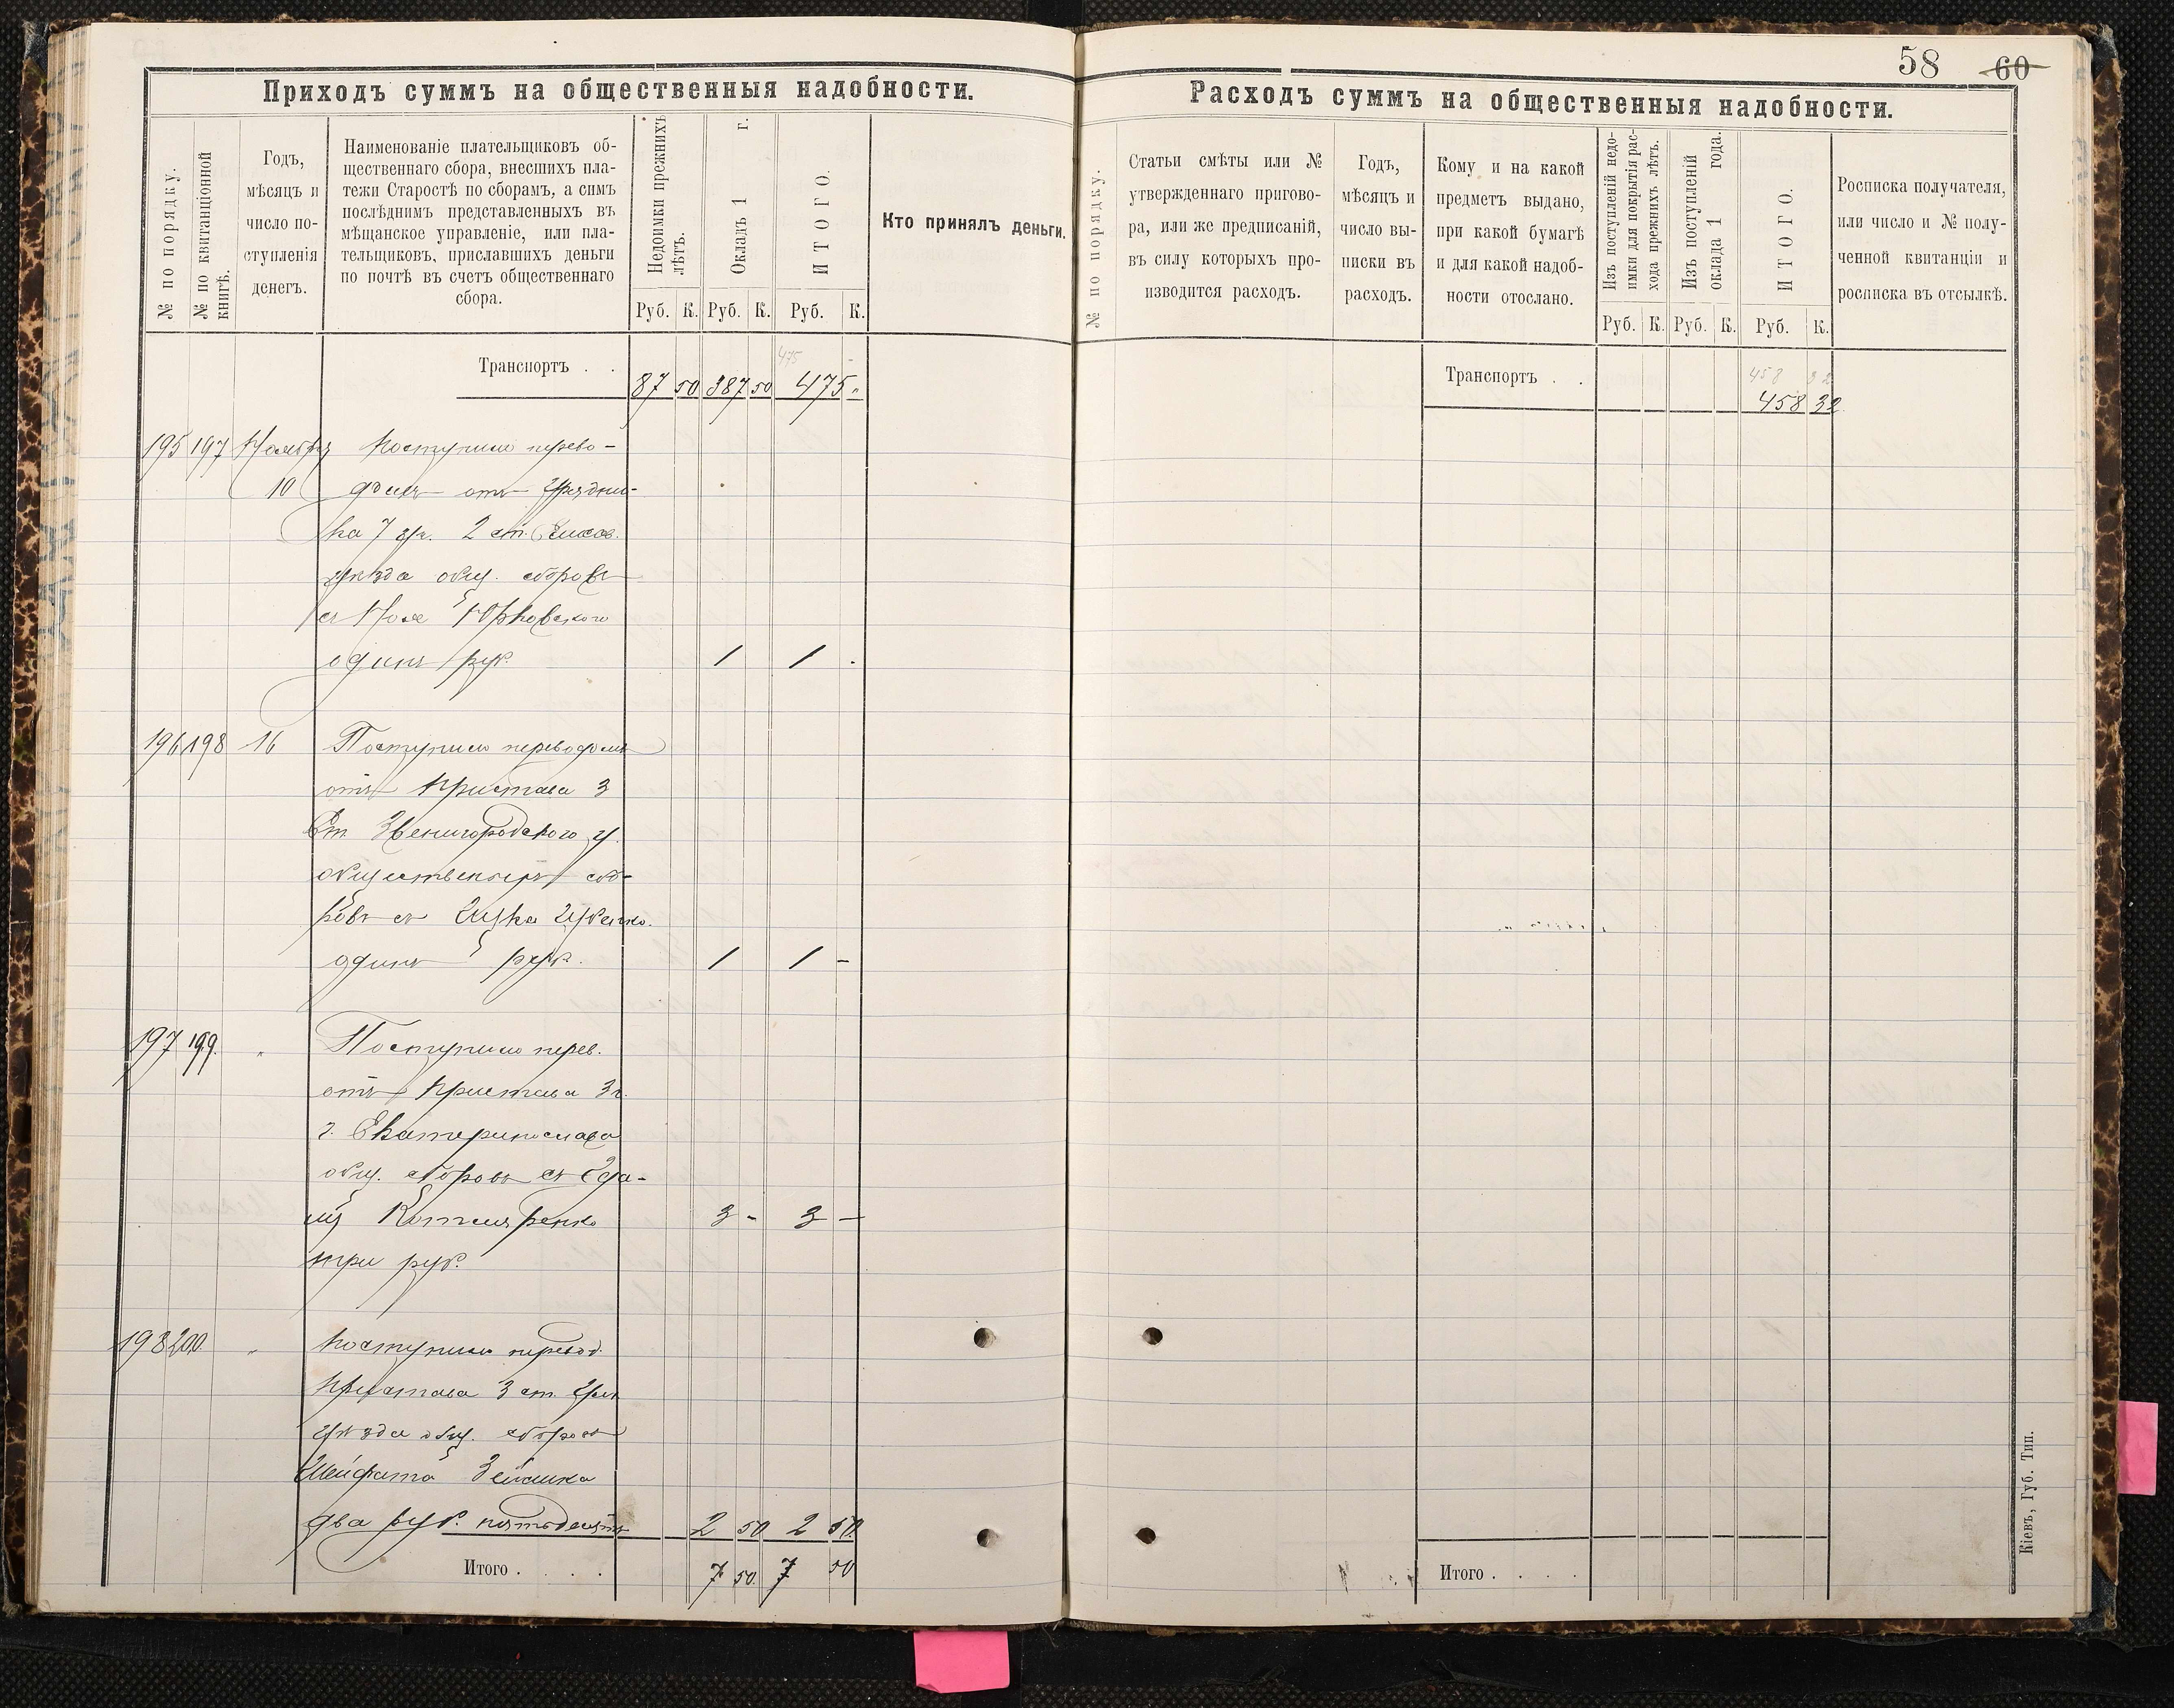 58 60
Приходъ суммъ на общественныя надобности.
№ по порядку.
№ по квитанціонной
книгѣ.
Годъ,
мѣсяцъ и
число по-
ступленія
денегъ.
Наименованіе плательщиковъ об-
щественнаго сбора, внесшихъ пла-
тежи Старостѣ по сборамъ, а симъ
послѣднимъ представленныхъ въ
мѣщанское управленіе, или пла-
тельщиковъ, приславшихъ деньги
по почтѣ въ счетъ общественнаго
сбора.
Недоимки прежнихъ
лѣтъ.
Окладъ 1 г.
ИТОГО.
Руб. К. Руб. К. Руб. К.
Кто принялъ деньги.
475 -
Транспортъ . . 87 50 387 50 475 "
195 197 Ноября Поступило перево-
10 домъ отъ Урядни-
ка 7 уч. 2 ст.
уѣзда общ. сборовъ
съ
одинъ руб. 1 1 .
196 198 16 Поступило переводомъ
отъ Пристава 3
Ст. Звенигородского у.
общественныхъ сбо-
ровъ съ
одинъ руб. 1 1 -
197 199. " Поступило перев.
отъ Пристава 3 ч.
г. Екатеринослава
общ. сборовъ съ
Котляренко 3 - 3 -
три руб.
198 200 " Поступило перевод.
Пристава 3 ст.
уѣзда общ. сборовъ
два руб. пятьдесятъ 2 50 2 50
Итого . . . . 7 50 7 50
Расходъ суммъ на общественныя надобности.
№ по порядку.
Статьи смѣты или №
утвержденнаго пригово-
ра, или же предписаній,
въ силу которыхъ про-
изводится расходъ.
Годъ,
мѣсяцъ и
число вы-
писки въ
расходъ.
Кому и на какой
предметъ выдано,
при какой бумагѣ
и для какой надоб-
ности отослано.
Изъ поступленій недо-
имки для покрытія рас-
хода прежнихъ лѣтъ.
Изъ поступленій
оклада 1 года.
ИТОГО.
Руб. К. Руб. К. Руб. К.
Росписка получателя,
или число и № полу-
ченной квитанціи и
росписка въ отсылкѣ.
458 32
Транспортъ . . 458 32
Итого . . . .
Кіевъ, Губ. Тип.